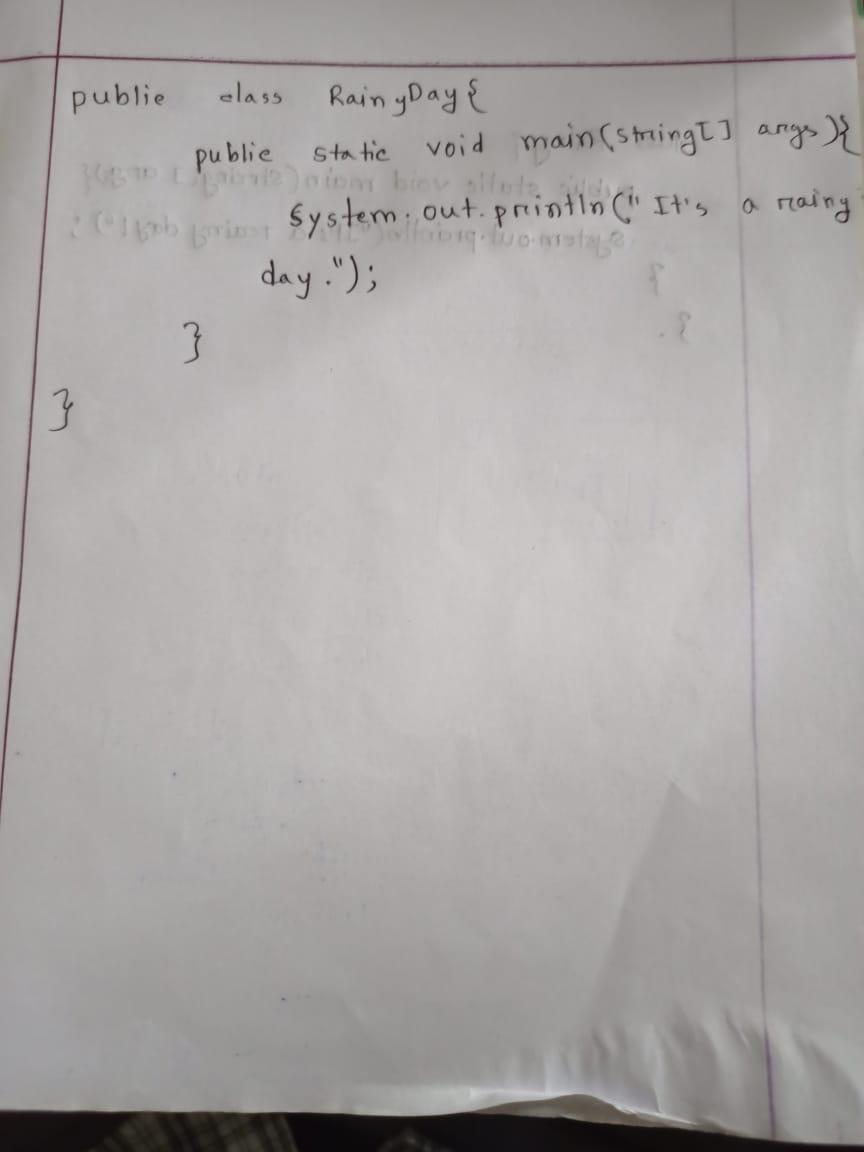 public class RainyDay{
public static void main(string[] args){
System.out.println("It's a rainy
day.");
}
}